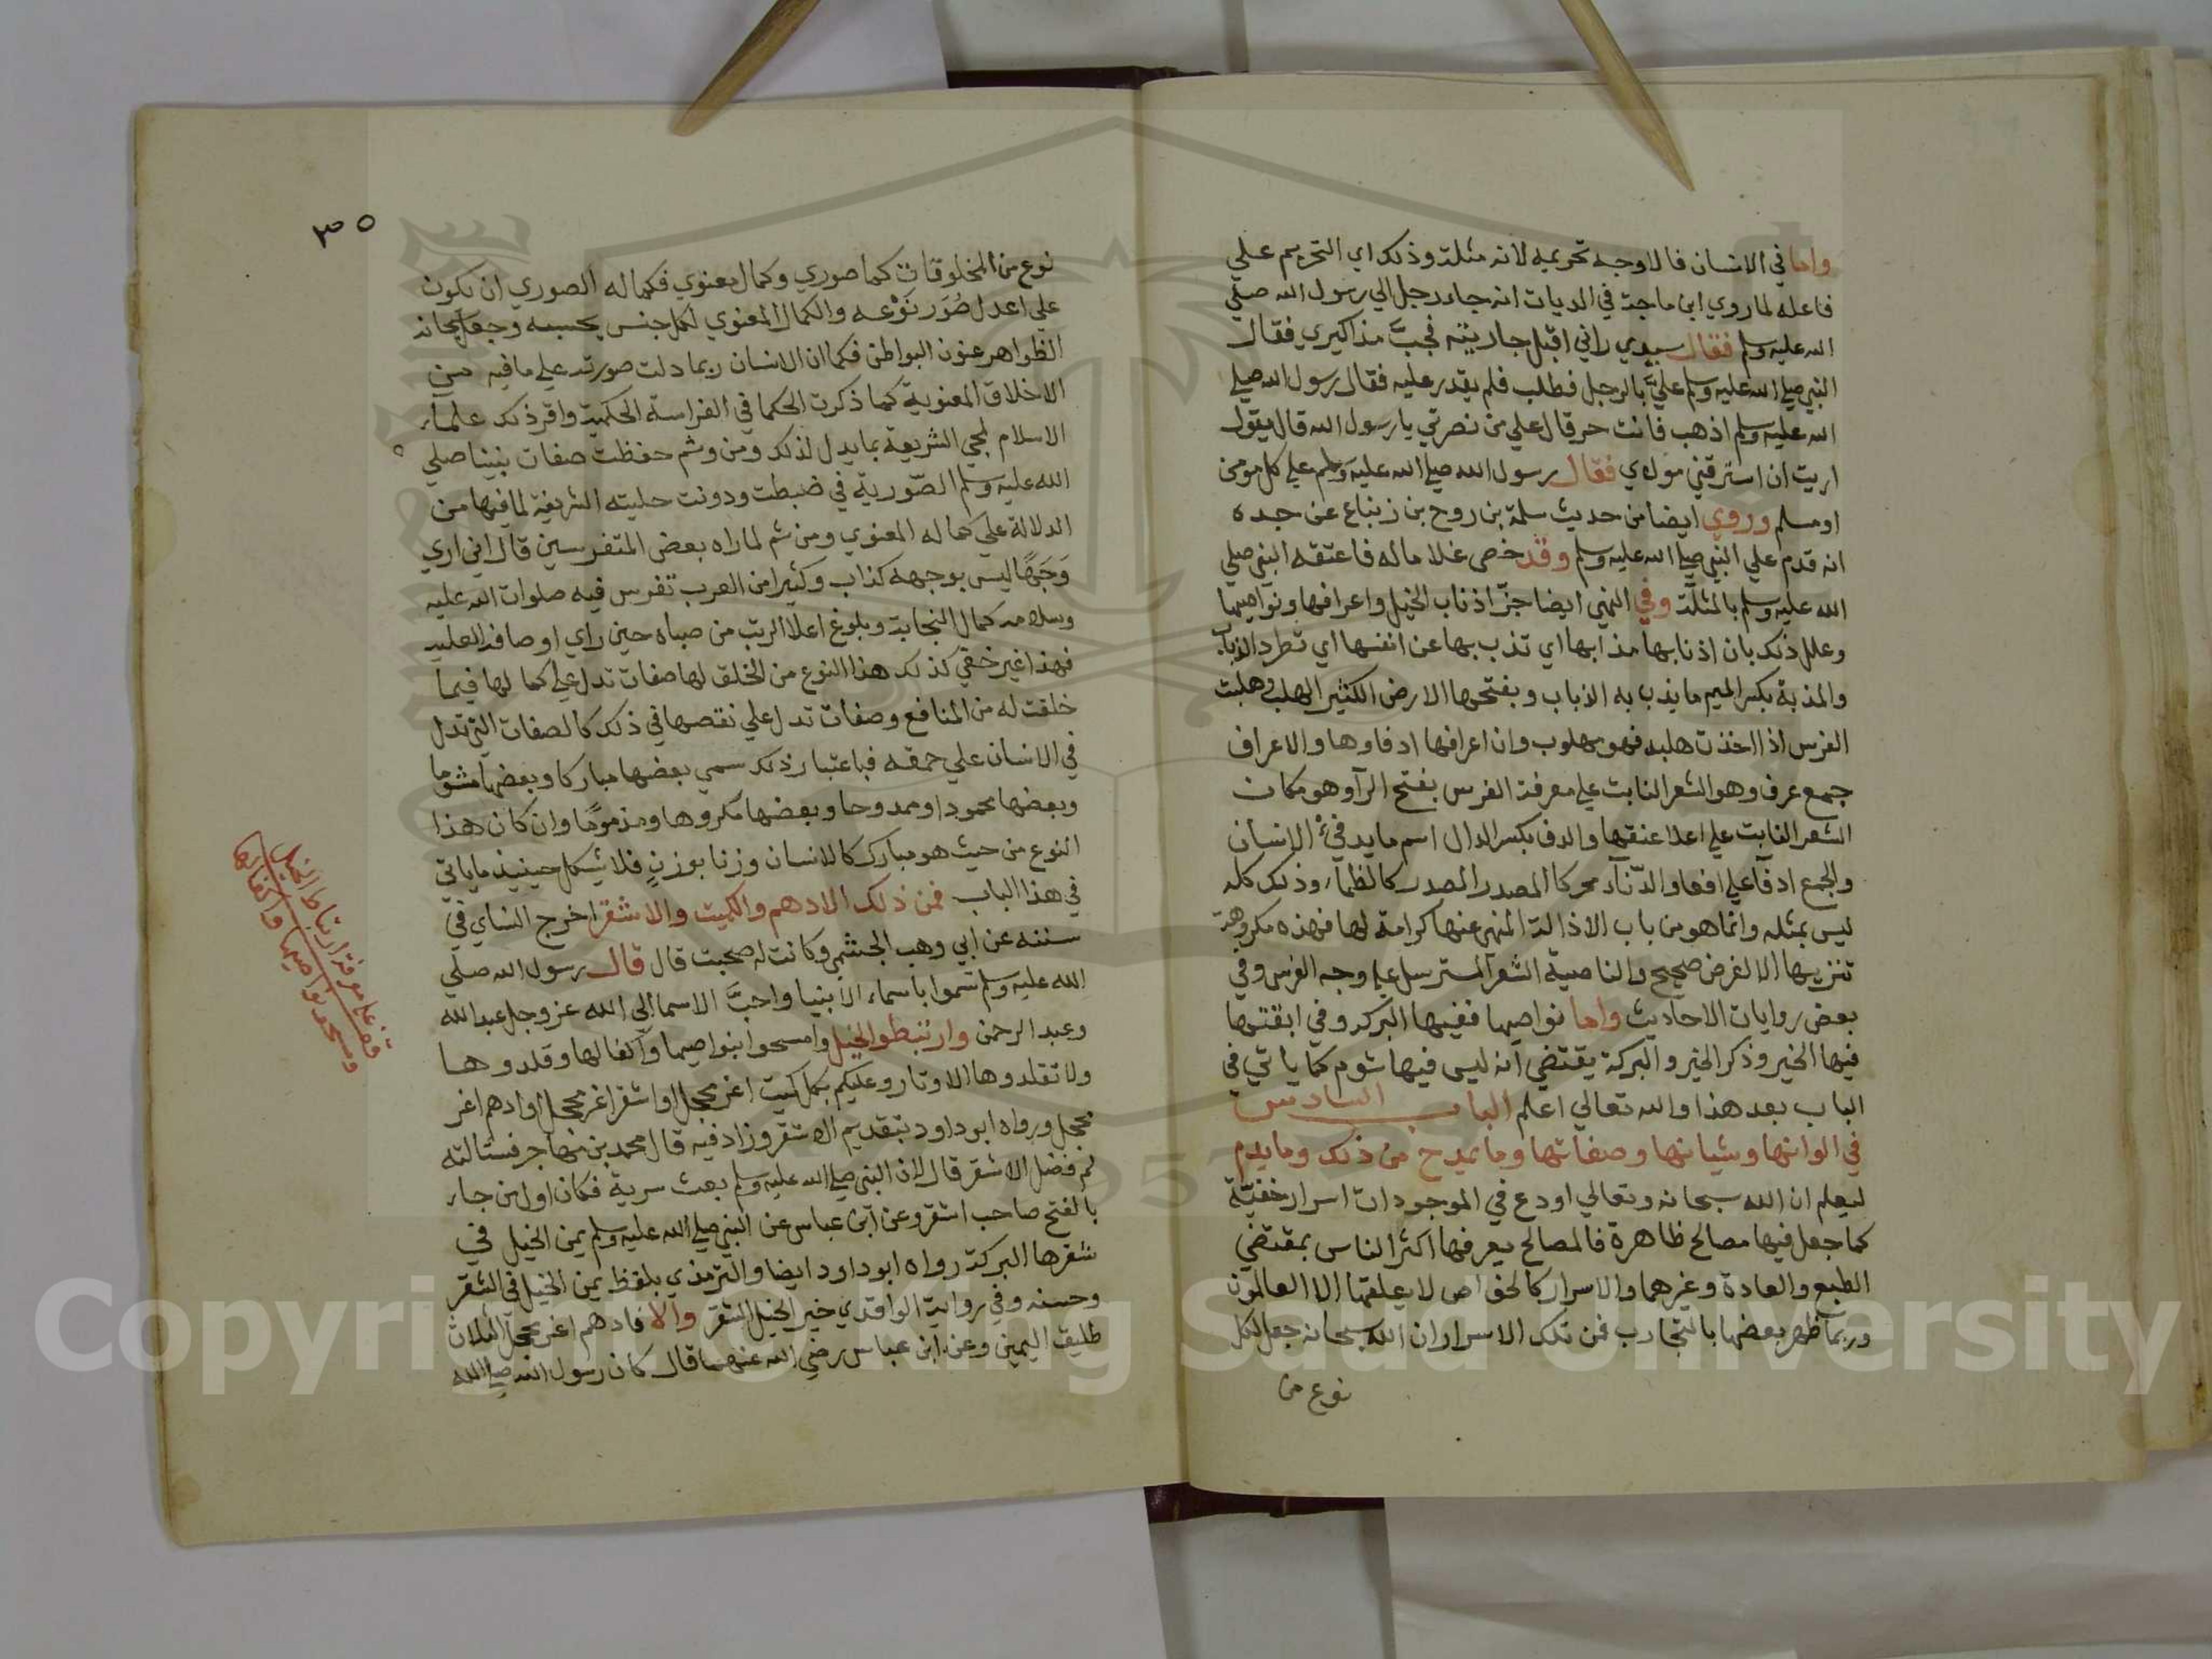 واما في الانسان فالاوجه تحريمه لانه مثلة وذلك اي التحريم علي
فاعله لما روي ابن ماجة في الديات انه جاء رجل الي رسول الله صلي
الله عليه وسلم فقال سيدي راني اقبل جاريته فجبَّ مذاكيري فقال
النبي صلي الله عليه وسلم عليَّ بالرجل فطلب فلم يقدر عليه فقال رسول الله صلي
الله عليه وسلم اذهب فانت حر قال علي من نصرتي يا رسول الله قال يقول
اريت ان استرقني مولاي فقال رسول الله صلي الله عليه وسلم علي كل مومن
او مسلم وروي ايضا من حديث سلمة بن روح بن زنباع عن جده
انه قدم علي النبي صلي الله عليه وسلم وقد خصي غلاما له فاعتقه النبي صلي
الله عليه وسلم بالمثلة وفي النهي ايضا جزّ اذناب الخيل واعرافها ونواصيها
وعلل ذلك بان اذنابها مذابها اي تذب بها عن انفسها اي تطرد الذباب
والمذبة بكسر الميم ما يذب به الذباب وبفتحها الارض الكثير الهلب وهلبت
الفرس اذا اخذت هلبه فهو مهلوب وان اعرافها ادفاوها والاعراف
جمع عرف وهو الشعر النابت علي معرفة الفرس بفتح الرآ وهو مكان
الشعر النابت علي اعلا عنقها والدف بكسر الدال اسم ما يدفئ الانسان
والجمع ادفآ علي افعا والدّفآء محركا المصدر المصدر كالظمآء وذلك كله
ليس بمثله وانما هو من باب الاذالة المنهي عنها كرامة لها فهذه مكروهة
تنزيها الا لغرض صحيح والناصية الشعر المسترسل علي وجه الفرس وفي
بعض روايات الاحاديث واما نواصيها ففيها البركه وفي ابقتها
فيها الخير وذكر الخير والبركة يقتضي انه ليس فيها شوم كما ياتي في
الباب بعد هذا والله تعالي اعلم الباب السادس
في الوانها وشياتها وصفاتها وما يمدح من ذلك وما يذم
ليعلم ان الله سبحانه وتعالي اودع في الموجودات اسرار خفيّة
كما جعل فيها مصالح ظاهرة فالمصالح يعرفها اكثر الناس بمقتضي
الطبع والعادة وغيرهما والاسرار كالخواص لا يعلقها الا العالمون
وربما ظهر بعضها بالتجارب فمن تلك الاسرار ان الله سبحانه جعل لكل
نوع من
٣٥
نوع من المخلوقات كما صوري وكمال معنوي فكماله الصوري ان يكون
علي اعدل صُوَر نَوْعه والكمال المعنوي لكل جنس بحسبه وجعل سبحانه
الظواهر عنون البواطن فكما ان الانسان ربما دلت صورته علي ما فيه من
الاخلاق المعنوية كما ذكرت الحكما في الفراسة الحكمية واقر ذلك علماء
الاسلام لمجي الشريعة بما يدل لذلك ومن وثم حفظت صفات نبينا صلي
الله عليه وسلم الصّورية في ضبطت ودونت حليته الشريفة لما فيها من
الدلالة علي كماله المعنوي ومن ثم لما راه بعض المتفرسين قال اني اري
وَجهًا ليس بوجهه كذاب وكثيرا من العرب تفرس فيه صلوات الله عليه
وسلامه كمال النجابة وبلوغ اعلا الرتب من صباه حين راي اوصافه العليه
فهذا غير خفي كذلك هذا النوع من الخلق لها صفات تدل علي كما لها فيما
خلقت له من المنافع وصفات تدل علي نقصها في ذلك كالصفات التي تدل
في الانسان علي حمقه فباعتبار ذلك سمي بعضها مباركا وبعضها مشوما
وبعضها محمودا وممدوحا وبعضها مكروها ومذمومًا وان كان هذا
النوع من حيث هو مبارك كالانسان وزنا بوزنٍ فلا يشكل حينيذ ما ياتي
في هذا الباب فمن ذلك الادهم والكميت والاشقر اخرج النساي في
سننه عن ابي وهب الجشمي وكانت له صحبت قال قال رسول الله صلي
الله عليه وسلم تسموا باسماء الانبيا واحبَّ الاسما الي الله عز وجل عبد الله
وعبد الرحمن وارتبطوا الخيل وامسحوا بنواصيها وآكفالها وقلدوها
ولا تقلدوها الاوتار وعليكم بكل كميت اغر محجل او اشقر اغر محجل او ادهم اغر
محجل ورواه ابو داود بتقديم الاشقر وزاد فيه قال محمد بن مهاجر فسئالته
لم فضل الاشقر قال لان النبي صلي الله عليه وسلم بعث سرية فكان اول من جاء
بالفتح صاحب اشقر وعن ابن عباس عن النبي صلي الله عليه وسلم يمن الخيل في
شقرها البركة رواه ابو داود ايضا والترمذي بلفظ يمن الخيل في الشقر
وحسنه وفي رواية الواقدي خير الخيل الشقر والا فادهم اغر محجل الثلاث
طليق اليمين وعن ابن عباس رضي الله عنهما قال كان رسول الله صلي الله
قف علي ارتباط الخيل
ومسح نواصيها واكفالها
Copyright © King Saud University
1957